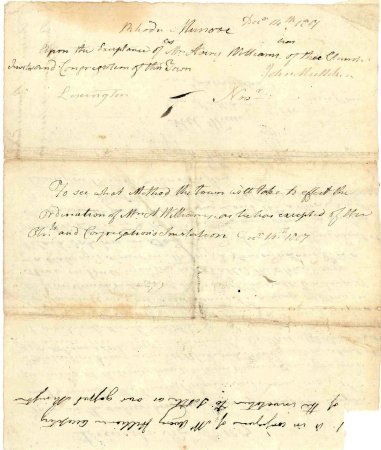 Rhoda Munroe Decr 14th 1807
Upon the Exceptance of Mr Avery Williams of the Church
and Congregation of this Town John
Lexington Nov
To see what Method the town will take to effect the
Ordination of Mr A Williams, as he has excepted of the
Chh and Congregations Invitation 14th 1807
in consequence of Mr Avery Williams accepting
of the invitation to Settle as our gospel